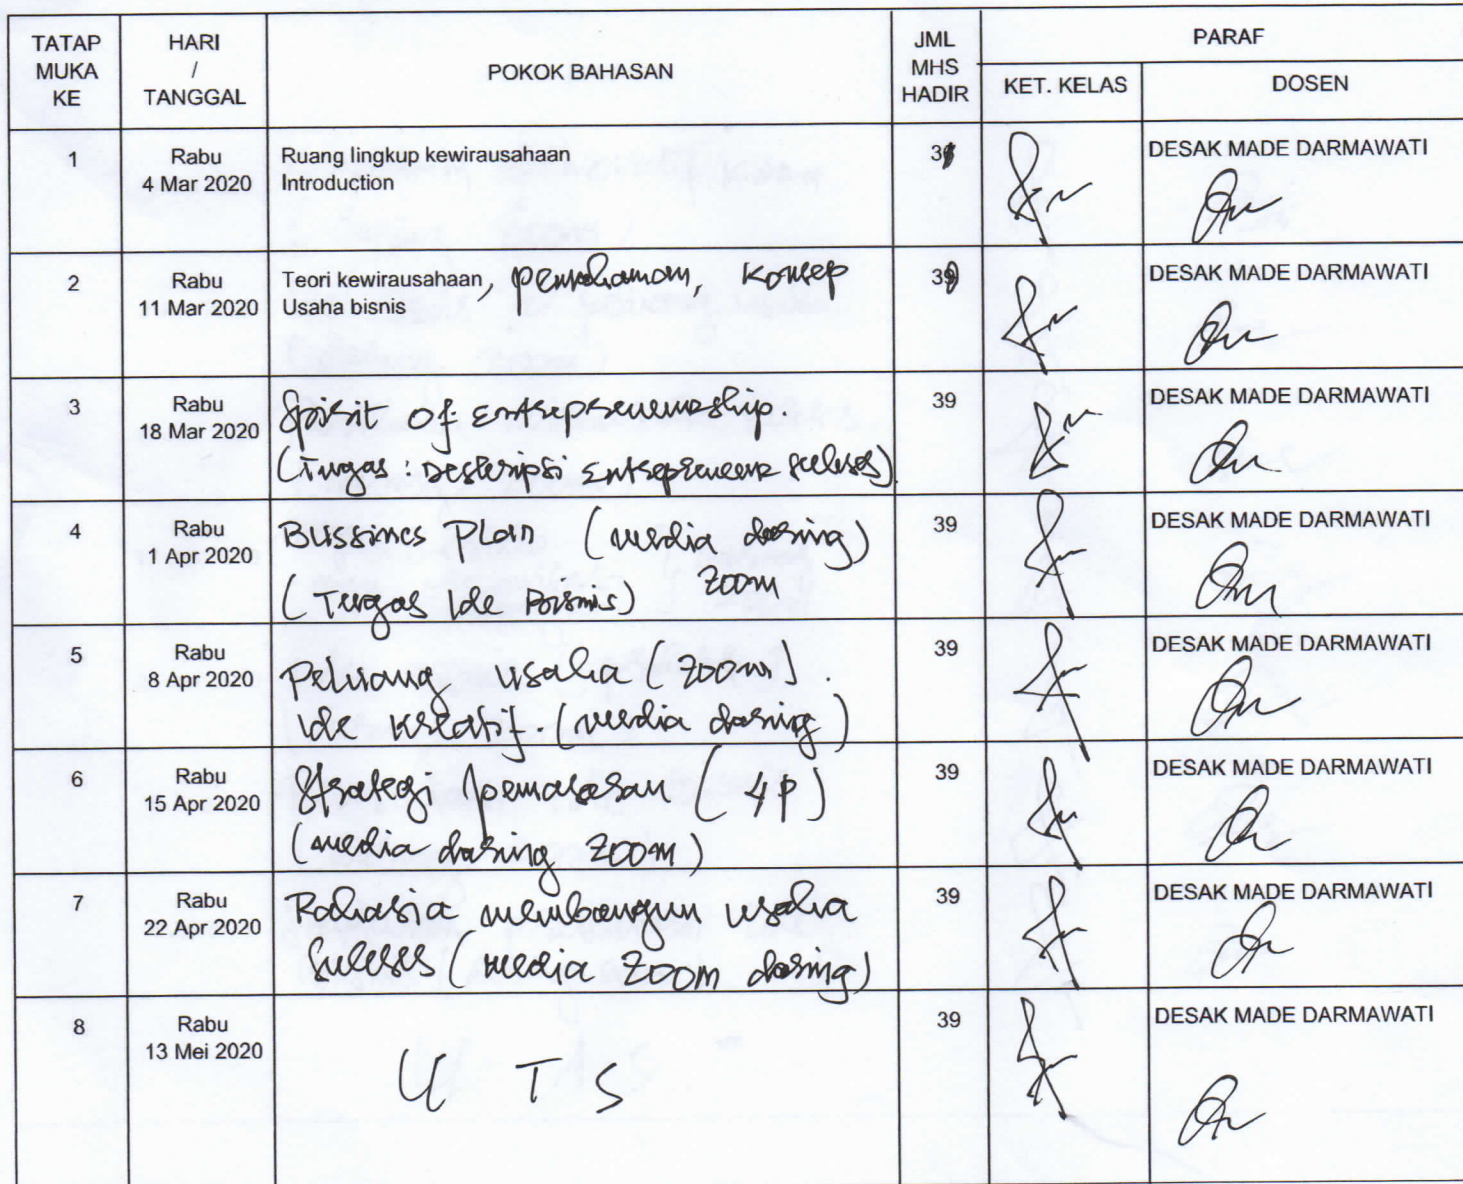 TATAP MUKA KE
HARI / TANGGAL
POKOK BAHASAN
JML MHS HADIR
PARAF
KET. KELAS
DOSEN
1
Rabu
4 Mar 2020
Ruang lingkup kewirausahaan
Introduction
DESAK MADE DARMAWATI
2
Rabu
11 Mar 2020
Teori kewirausahaan, pemahaman, konsep
Usaha bisnis
39
DESAK MADE DARMAWATI
3
Rabu
18 Mar 2020
Spirit of Entrepreneurship.
(Tugas: Deskripsi Entrepreneur sukses)
39
DESAK MADE DARMAWATI
4
Rabu
1 Apr 2020
Bussines Plan (media daring)
(Tugas Ide Bisnis) zoom
39
DESAK MADE DARMAWATI
5
Rabu
8 Apr 2020
Peluang usaha (zoom).
Ide kreatif. (media daring)
39
DESAK MADE DARMAWATI
6
Rabu
15 Apr 2020
Strategi pemasaran (4P)
(media daring ZOOM)
39
DESAK MADE DARMAWATI
7
Rabu
22 Apr 2020
Rahasia membangun usaha
Sukses (media ZOOM daring)
39
DESAK MADE DARMAWATI
8
Rabu
13 Mei 2020
U T S
39
DESAK MADE DARMAWATI